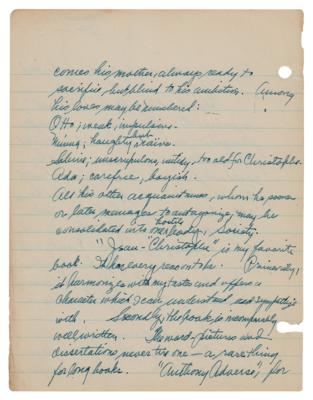 comes his mother, always ready to
sacrifice, but blind to his ambition. Among
his loves may be numbered:
Otto; weak, impulsive.
Minna; haughty but naive.
Sabine; unscrupulous, witty, too old for Christophe.
Ada; carefree, boyish.
All his other acquaintances, whom he sooner
or later manages to antagonize, may be
consolidated into one hostile body, Society.
"Jean-Christophe" is my favorite
book. It has every reason to be. Primarily,
it harmonizes with my tastes and offers a
character which I can understand and sympathize
with. Secondly, the book is incomparably
well written. Its word-pictures and
dissertations never tire one — a rare thing
for long books. "Anthony Adverse", for